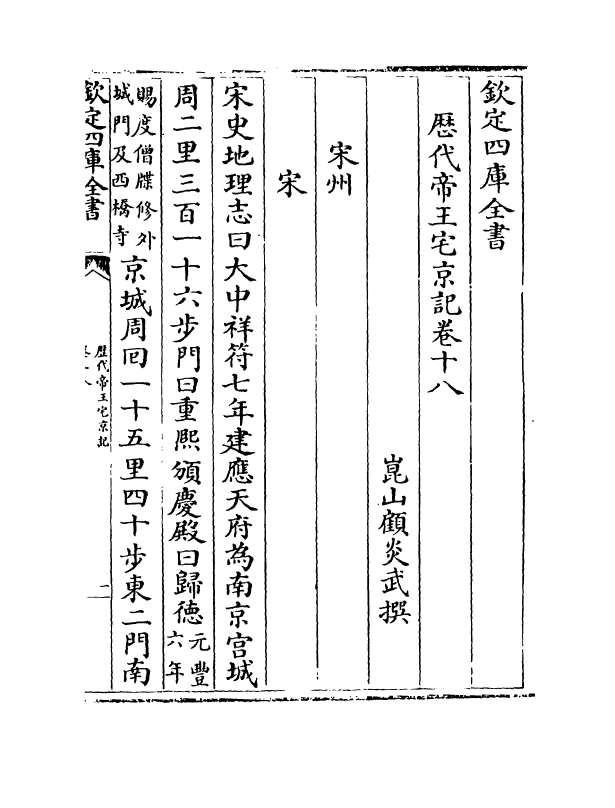 欽定四庫全書
歴代帝王宅京記卷十八
崑山顧炎武撰
宋州
宋
宋史地理志曰大中祥符七年建應天府為南京宫城
周二里三百一十六步門曰重熈頒慶殿曰歸徳元豐六年
賜度僧牒修外城門及西橋寺京城周回一十五里四十步東二門南
欽定四庫全書
歴代帝王宅京記
卷十八
一